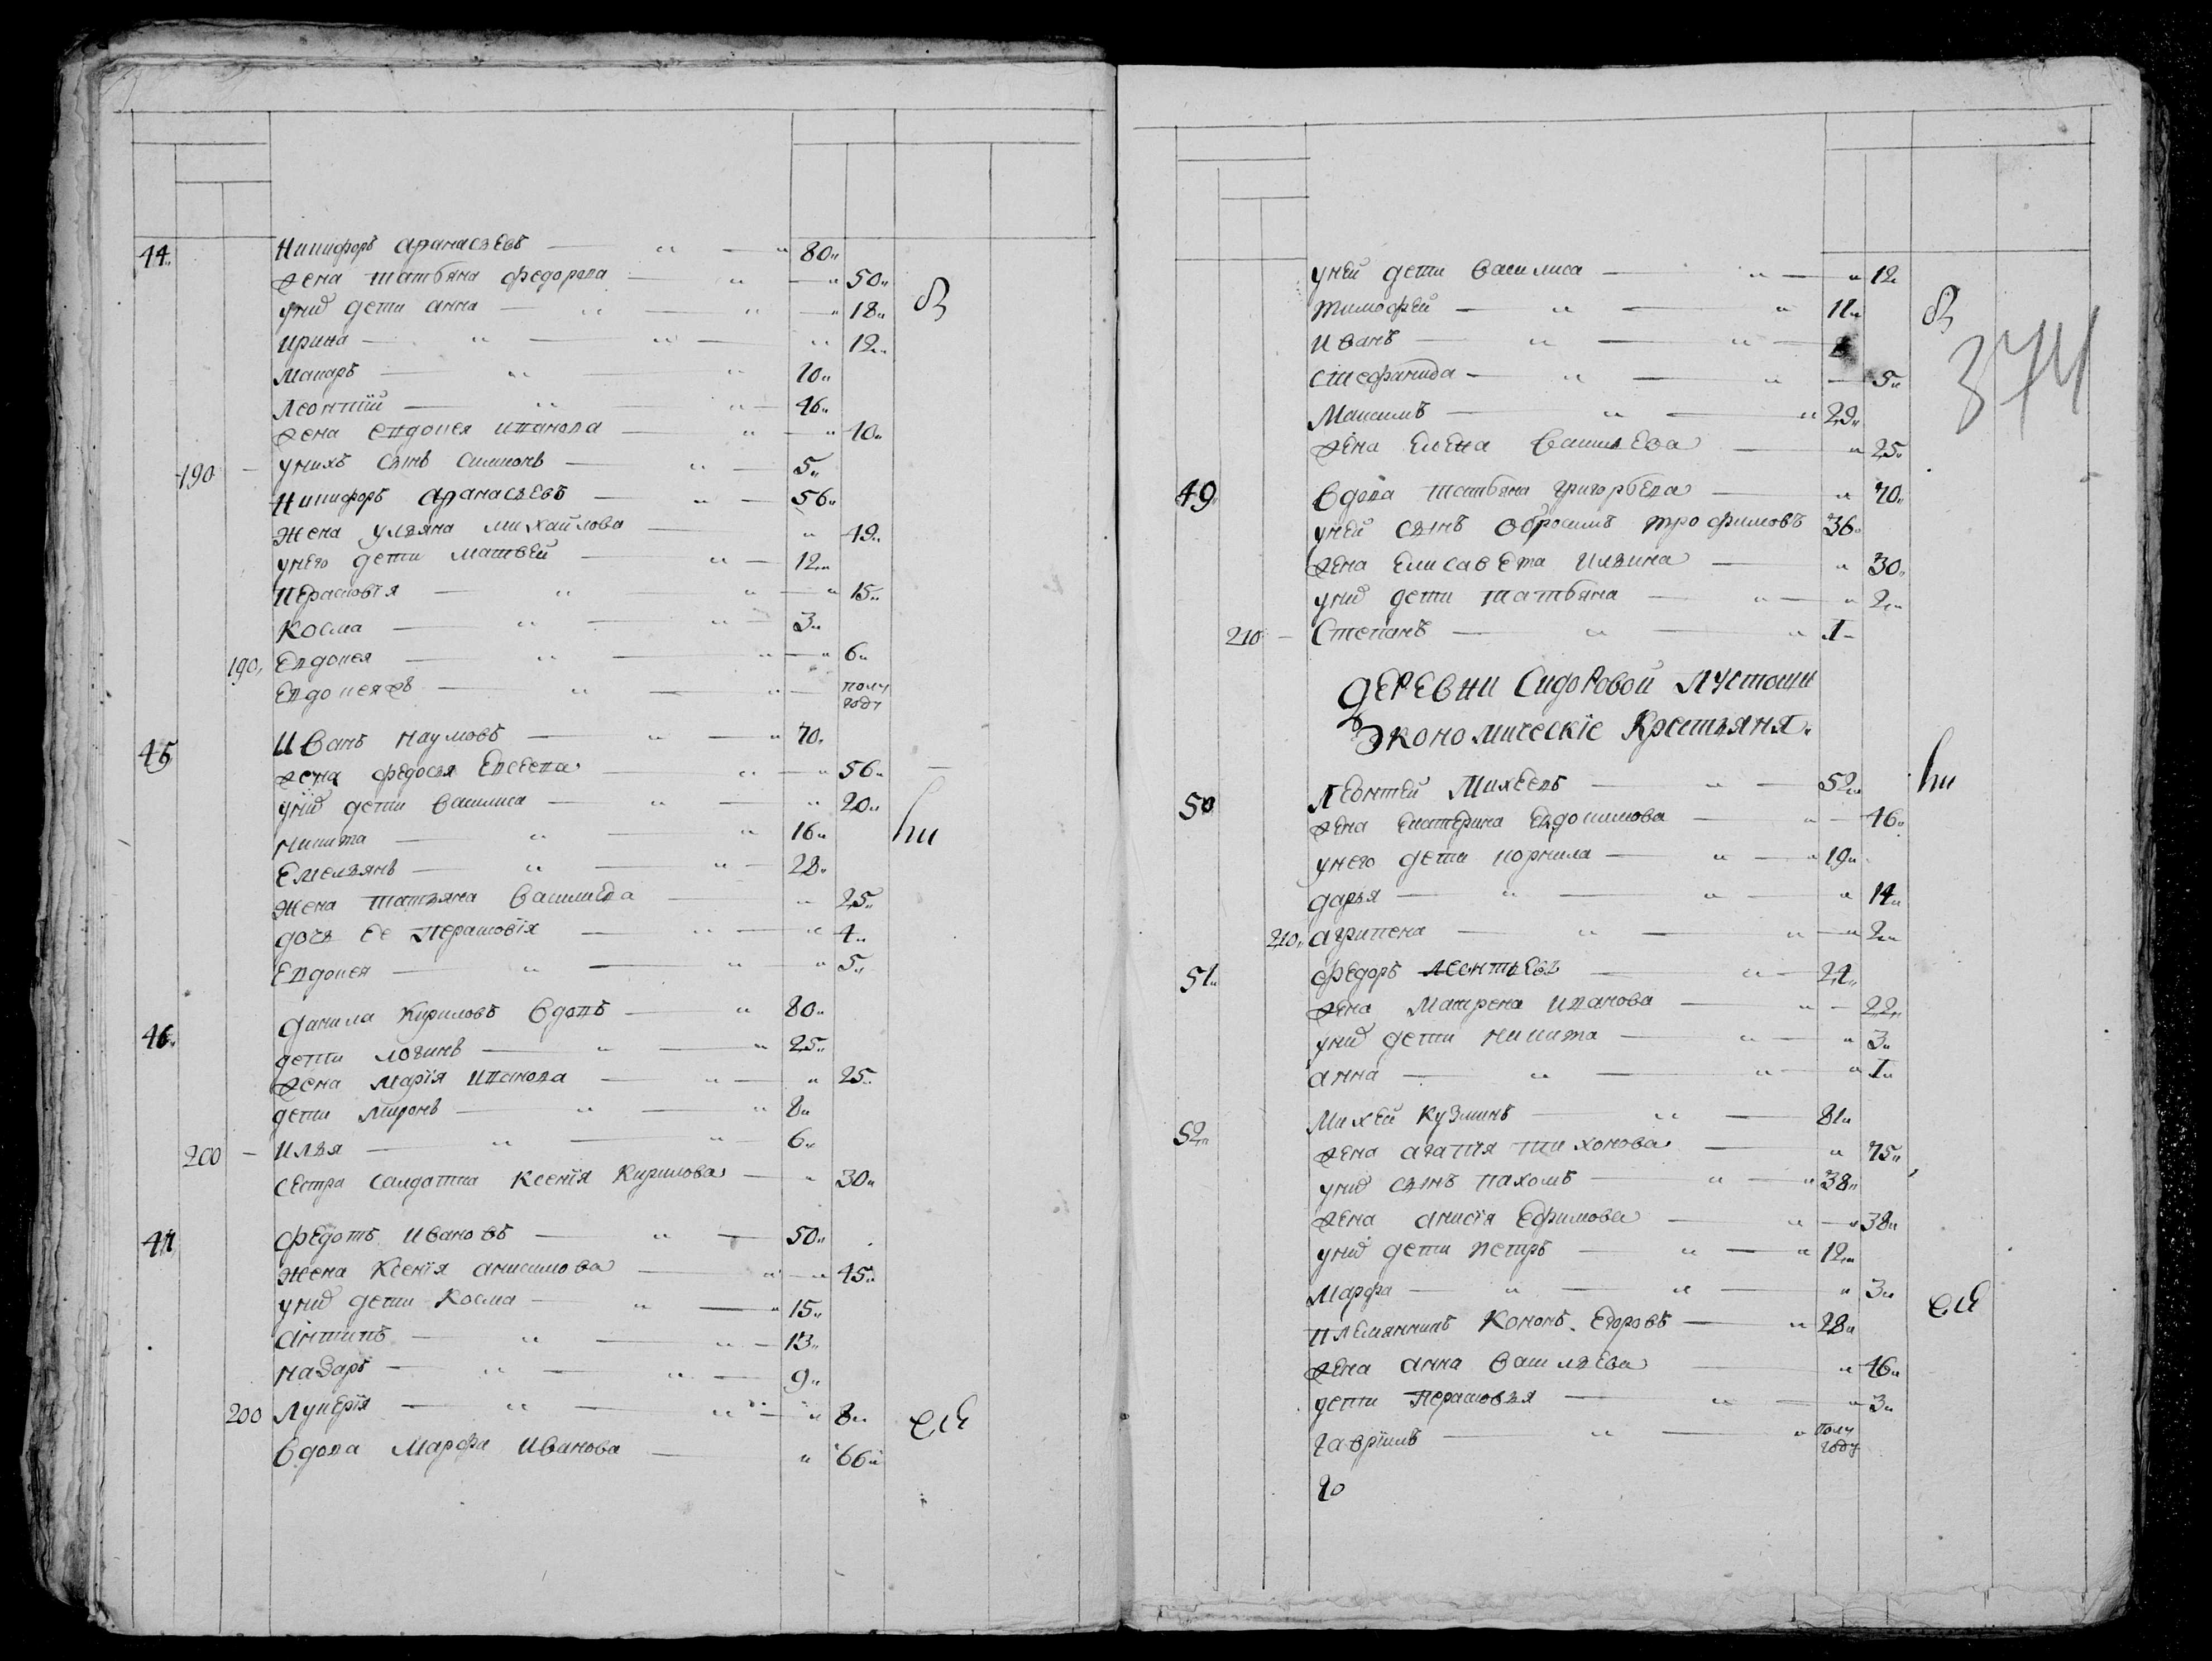 44. Никифоръ Афанасьевъ 80
жена татьяна федорова 50
уних дети анна 18
ирина 12
Макаръ 10
Леонтiй 46
жена евдокея иванова 40
190 уних сынъ симионъ 5
Никифоръ Афанасьевъ 56
жена ульяна михайлова 49
унего дети матвей 12
Перасковiя 15
Косма 3
190 Евдокея 6
Евдокея жъ полу году
45 Иванъ наумовъ 70
жена федосья Евсеева 56
уних дети василиса 20
никита 16
Емельянъ 28
жена татьяна василиева 25
дочь ее перасковiя 4
Евдокея 5
46. данила Кириловъ вдовъ 80
дети логинъ 25
жена марiя иванова 25
дети миронъ 8
200 илья 6
сестра салдатка ксенiя Кирилова 30
47 федотъ Ивановъ 50
жена Ксенiя анисимова 45
уних дети косма 15
антипъ 13
назаръ 9
200 Лукерiя 8
вдова Марфа Иванова 66
374
уней дети василиса 12
тимофей 11
Иванъ
стефанида 5
Максимъ 29
жена Елена васильева 25
49. вдова татьяна григорьева 70
уней сынъ обросимъ трофимовъ 36
жена Елисавета ильина 30
уних дети татьяна 2
210 Степанъ 1
деревни сидоровой пустоши
Экономическiе Крестьяня.
50 Леонтей Михеевъ 52
жена екатерина Евдокимова 46
унего дети корнила 19
дарья 14
210. агрипена 2
51. федоръ леонтьевъ 21
жена матрена иванова 22
уних дети никита 3
анна 1
52. михей кузминъ 81
жена агапiя тихонова 75
уних сынъ пахомъ 38
жена анисiя Ефимова 38
уних дети петръ 12
марфа 3
племянникъ Кононъ Егоровъ 28
жена анна васильева 46
дети Перасковья 3
гаврiилъ полу году